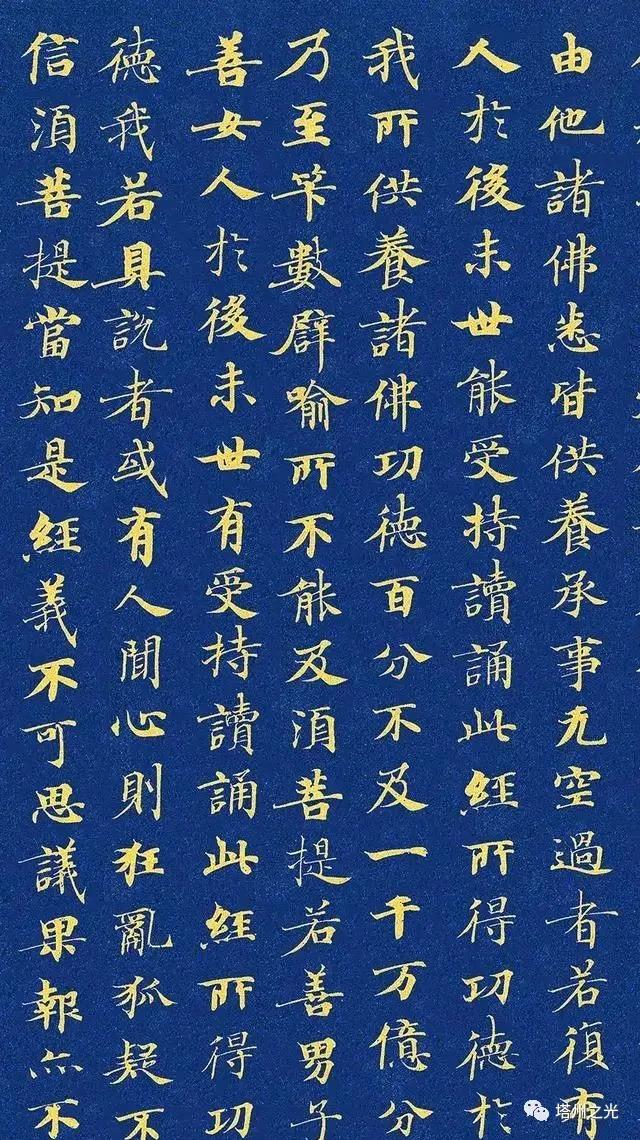 由他諸佛悉皆供養承事无空過者若復有
人於後末世能受持讀誦此經所得功德於
我所供養諸佛功德百分不及一千万億分
乃至笇數譬喻所不能及須菩提若善男子
善女人於後末世有受持讀誦此經所得功
德我若具說者或有人聞心則狂亂狐疑不
信須菩提當知是經義不可思議果報亦不
塔州之光